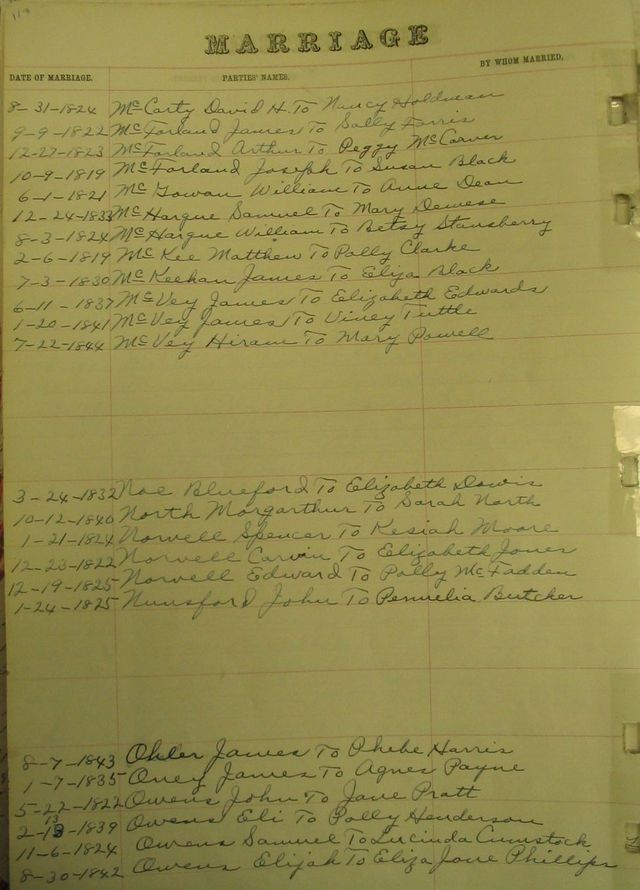 119
MARRIAGE
DATE OF MARRIAGE. PARTIES' NAMES. BY WHOM MARRIED,
8-31-1824 McCarty David H. To Nancy Holdman
9-9-1822 McForland James To Sally Farris
12-27-1823 McFarland Arthur To Peggy McCarver
10-9-1819 McForland Joseph To Susan Black
6-1-1821 McGowan William To Anne Dean
12-24-1833 McHargue Samuel To Mary Dewese
8-3-1824 McHargue William To Betsy Stansberry
2-6-1819 McKee Matthew To Polly Clarke
7-3-1830 McKeehan James To Eliza Black
6-11-1837 McVey James To Elizabeth Edwards
1-20-1841 McVey James To Viney Tuttle
7-22-1844 McVey Hiram To Mary Powell
3-24-1832 Noe Blueford To Elizabeth Davis
10-12-1840 North Morgarthur To Sarah North
1-21-1824 Norvell Spencer To Kesiah Moore
12-23-1822 Norvell Carvin To Elizabeth Jones
12-19-1825 Norvell Edward To Polly McFadden
1-24-1825 Nunsford John To Permelia Butcher
8-7-1843 Ohler James To Phebe Harris
1-7-1835 Oney James To Agnes Payne
5-22-1822 Owens John To Jane Pratt
2-13-1839 Owens Eli To Polly Henderson
11-6-1824 Owens Samuel To Lucinda Cumstock.
8-30-1842 Owens Elijah To Eliza Jane Phillips